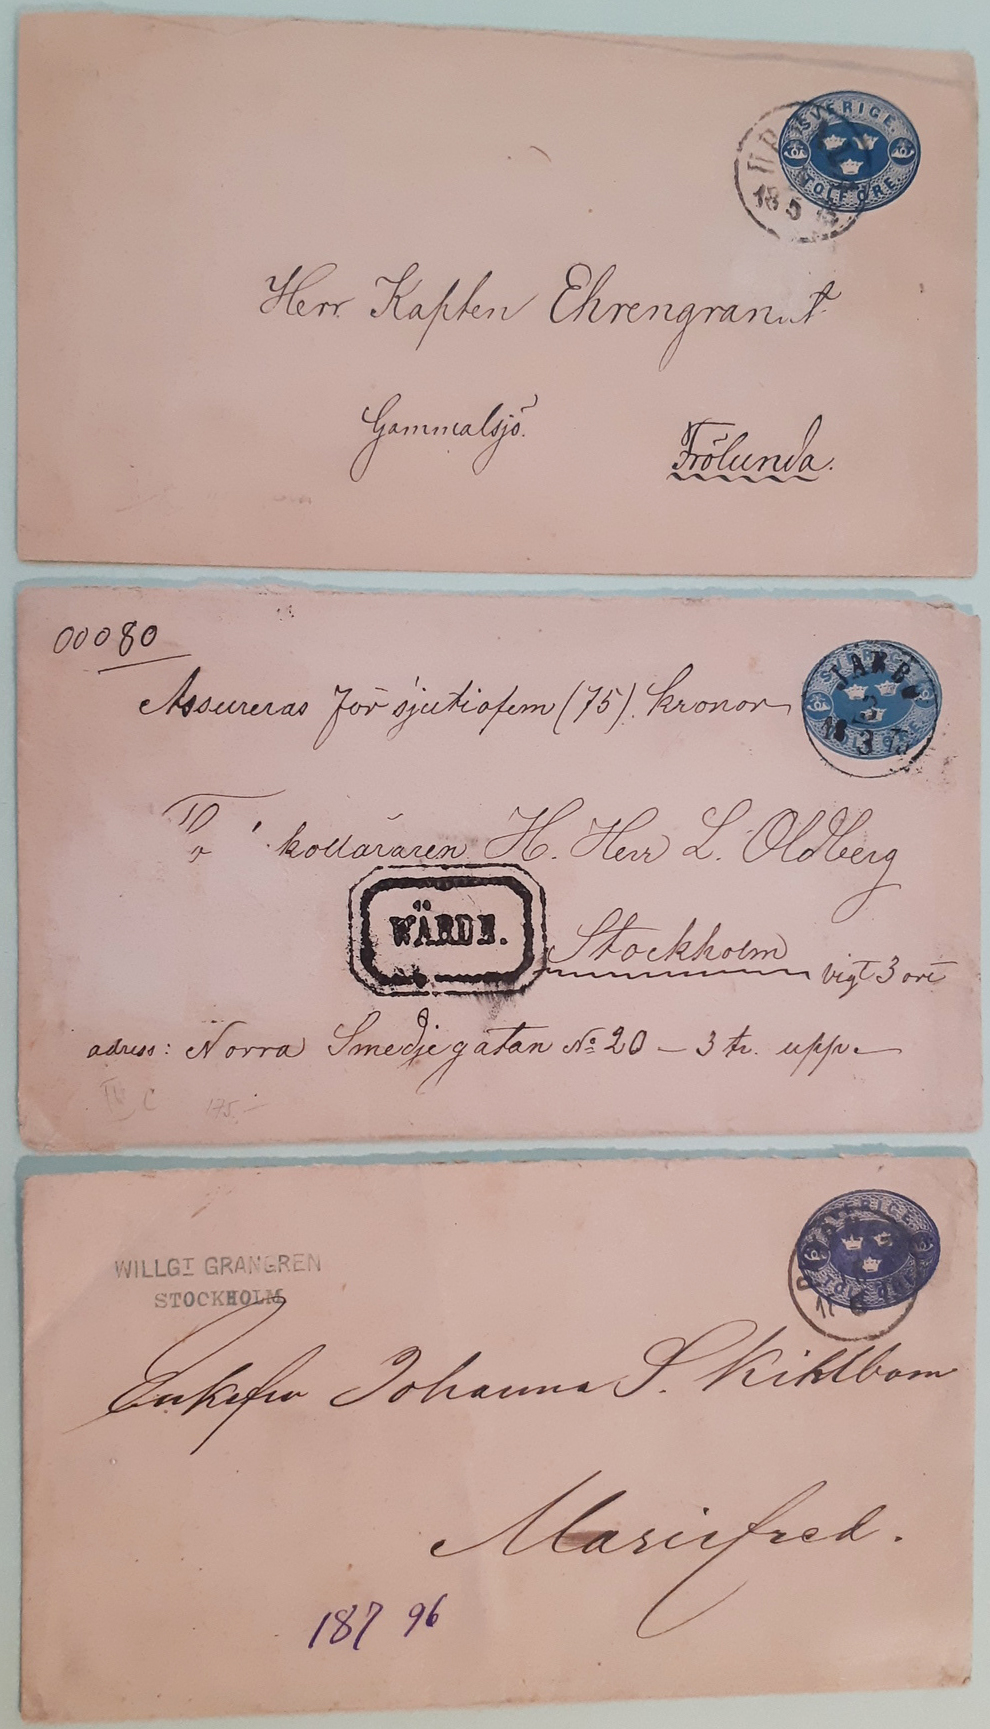 SVERIGE.
TOLF ÖRE.
18 5
Herr Kapten Ehrengranat
Gammalsjö.
Frölunda.
00080
Assureras för sjutiofem (75) kronor
JÄRBO
18 3
kolläraren H. Herr L. Oldberg
WÄRDE.
Stockholm
vigt 3 ort
adress: Norra Smedjegatan No 20 — 3 tr. upp.
175.-
SVERIGE.
WILLGT GRANGREN
STOCKHOLM
Enkefru Johanna S. Kihlbom
Mariefred.
187 96